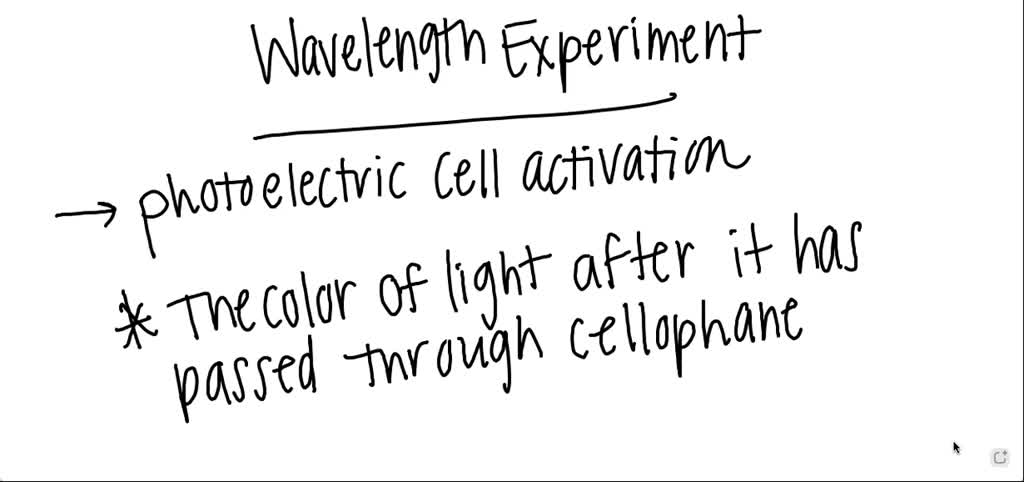 Wavelength Experiment
→ photoelectric cell activation
* The color of light after it has
passed through cellophane